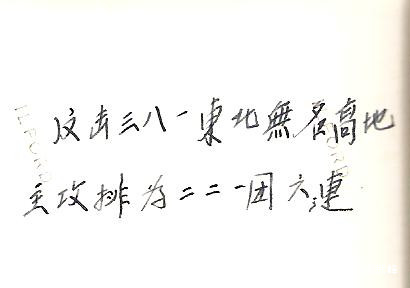 反击三八一東北無名高地
主攻排为二二一团六連